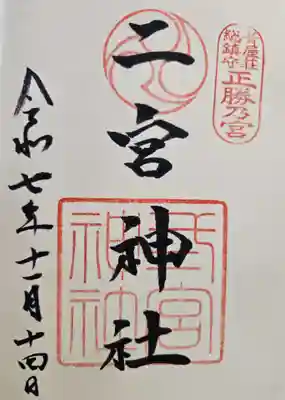 総鎮守
正勝乃宮
二宮神社
令和七年十一月十四日